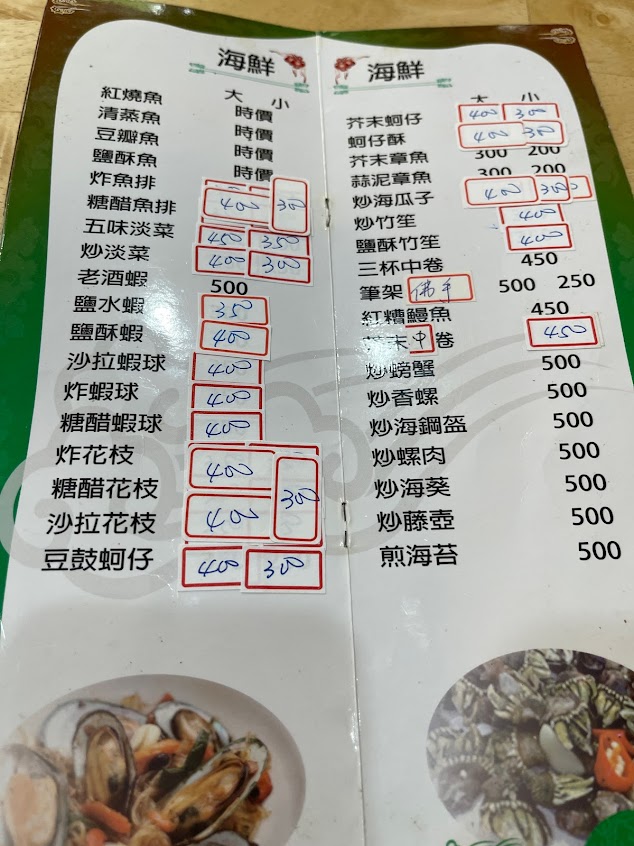 海鮮
大 小
紅燒魚 時價
清蒸魚 時價
豆瓣魚 時價
鹽酥魚 時價
炸魚排
糖醋魚排 400 300
五味淡菜 450 350
炒淡菜 400 300
老酒蝦 500
鹽水蝦 350
鹽酥蝦 400
沙拉蝦球 400
炸蝦球 400
糖醋蝦球 400
炸花枝 400
糖醋花枝 300
沙拉花枝 400
豆鼓蚵仔 400 300
海鮮
大 小
芥末蚵仔 400 300
蚵仔酥 400 300
芥末章魚 300 200
蒜泥章魚 300 200
炒海瓜子 400 300
炒竹笙 400
鹽酥竹笙 400
三杯中卷 450
筆架 佛手 500 250
紅糟鰻魚 450
芥末中卷 450
炒螃蟹 500
炒香螺 500
炒海鋼盔 500
炒螺肉 500
炒海葵 500
炒藤壺 500
煎海苔 500